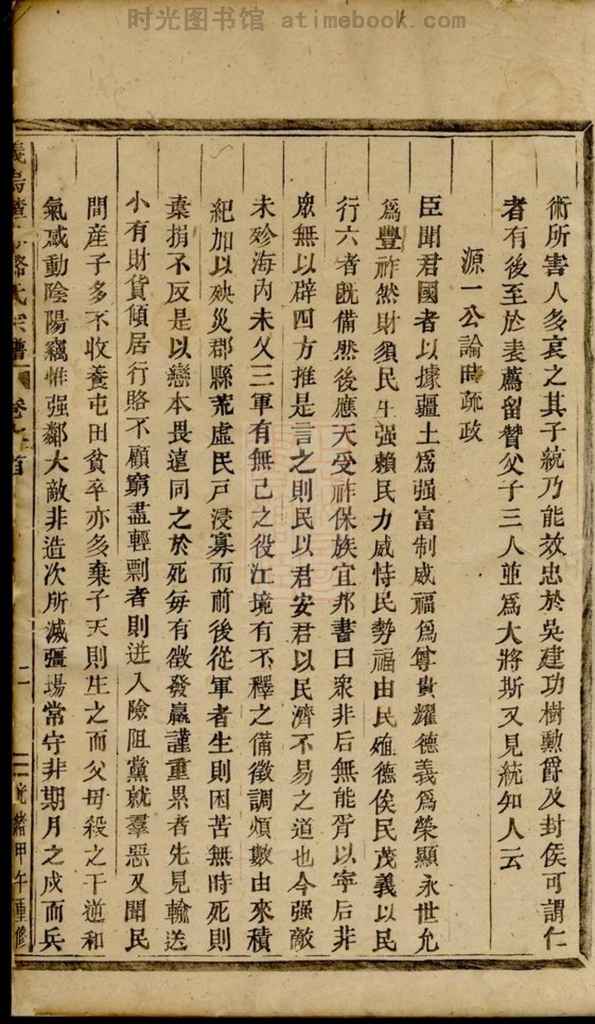 时光图书馆 - atimebook.com
術所害人多哀之其子統乃能效忠於吳建功樹勲爵及封侯可謂仁
者有後至於表薦留贊父子三人並爲大將斯又見統知人云
源一公論時疏政
臣聞君國者以據疆土爲强富制威福爲尊貴耀德義爲榮顯永世允
爲豐祚然財須民生强賴民力威恃民勢福由民殖德俟民茂義以民
行六者旣備然後應天受祚保族宜邦書曰衆非后無能胥以寧后非
衆無以辟四方推是言之則民以君安君以民濟不易之道也今强敵
未殄海內未乂三軍有無已之役江境有不釋之備徵調煩數由來積
紀加以殃災郡縣荒虛民戸浸寡而前後從軍者生則困苦無時死則
棄捐不反是以戀本畏遠同之於死每有徵發羸謹重累者先見輸送
小有財貨傾居行賂不顧窮盡輕剽者則迸入險阻黨就羣惡又聞民
間産子多不收養屯田貧卒亦多棄子天則生之而父母殺之干逆和
氣感動陰陽竊惟强鄰大敵非造次所滅疆場常守非期月之戍而兵
駱氏宗譜
首
二
光緒甲午重修